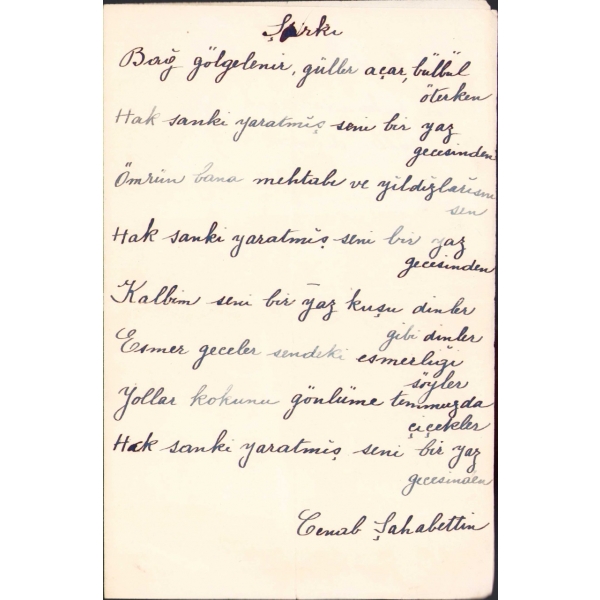 Şarkı
Bağ gölgelenir, güller açar, bülbül
öterken
Hak sanki yaratmış seni bir yaz
gecesinden
Ömrün bana mehtabı ve yıldızlarısın
sen
Hak sanki yaratmış seni bir yaz
gecesinden
Kalbim seni bir yaz kuşu dinler
gibi dinler
Esmer geceler sendeki esmerliği
söyler
Yollar kokunu gönlüme temmuzda
çiçekler
Hak sanki yaratmış seni bir yaz
gecesinden
Cenab Şahabettin